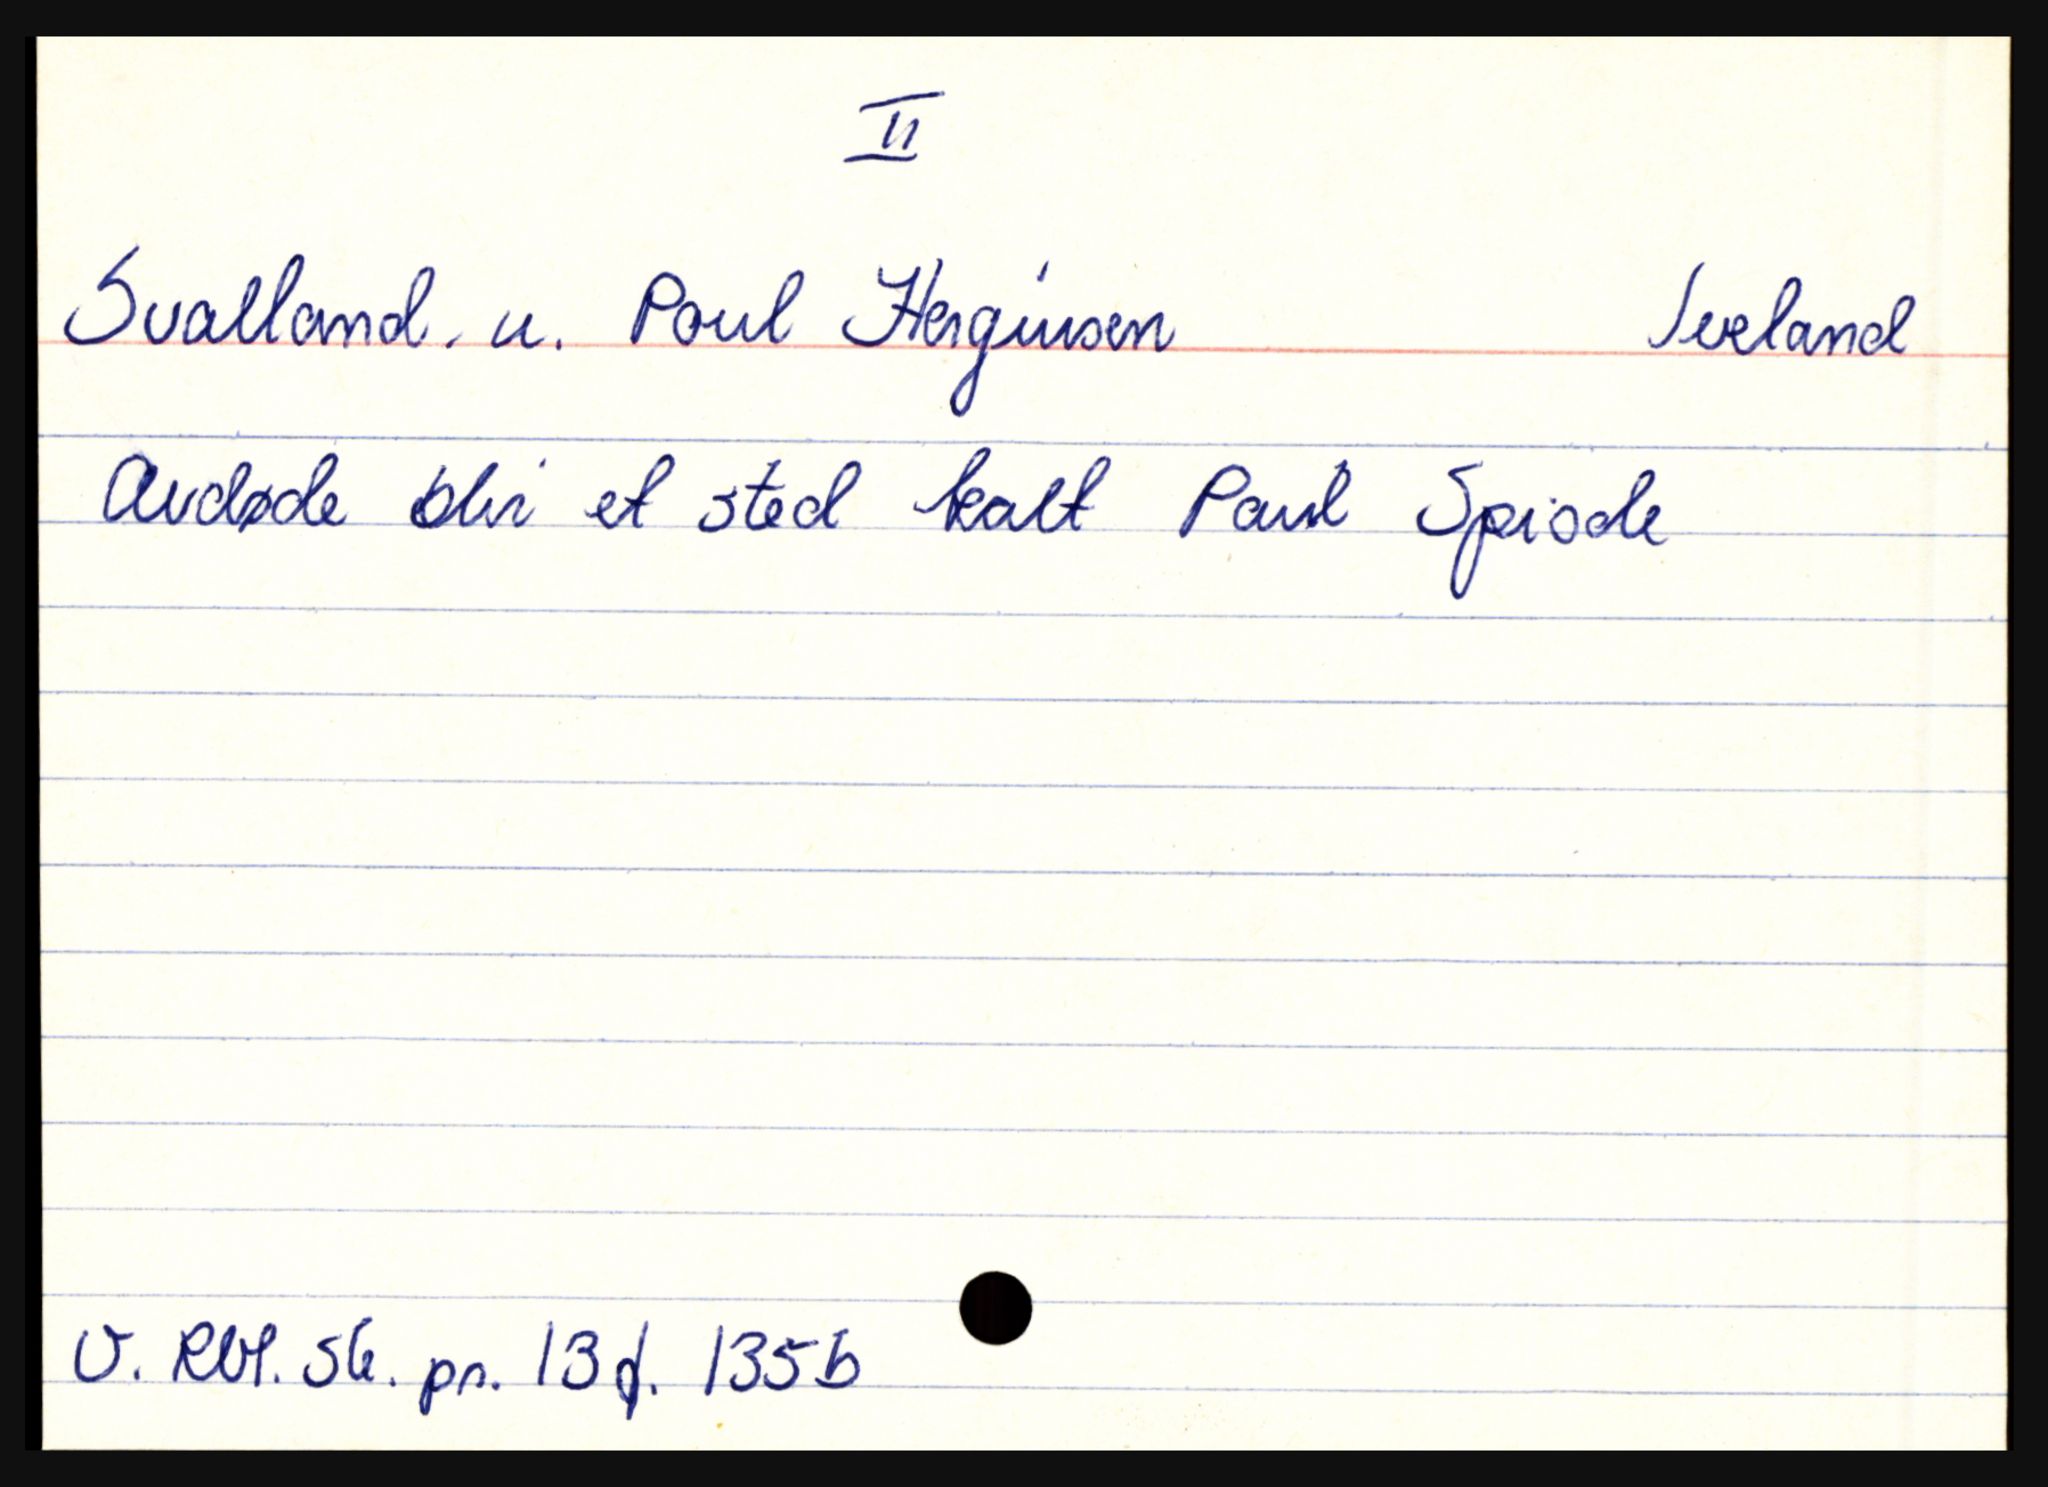 II
Svalland. u. Poul Herginsen Iveland
Avdøde blir et sted kalt Paul Spiode
V. Rbl. sk. pr. 13 f. 135b